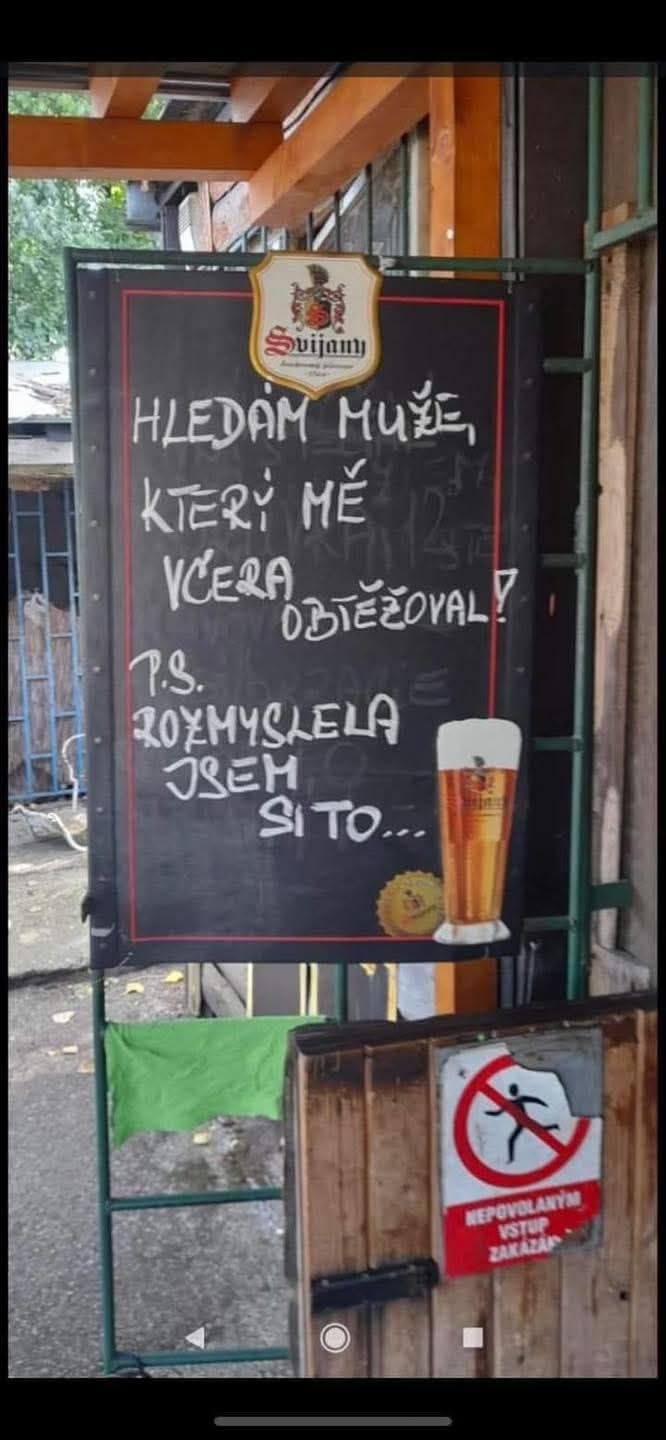 Svijany
HLEDÁM MUŽE,
KTERÝ MĚ
VČERA
OBTĚŽOVAL!
P.S.
ROZMYSLELA
JSEM
SI TO...
Svijany
NEPOVOLANÝM
VSTUP
ZAKÁZÁN